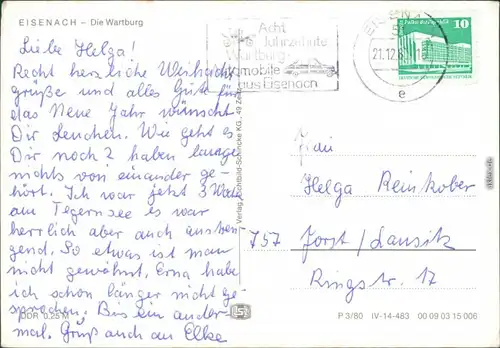 EISENACH – Die Wartburg
Liebe Helga!
Recht herzliche Weihnachts
grüße und alles Gute für
das Neue Jahr wünscht
Dir Lenchen. Wie geht es
Dir noch? haben lange
nichts von einander ge-
hört. Ich war jetzt 3 Woch
am Tegernsee es war
herrlich aber auch anstren
gend. So etwas ist man
nicht gewöhnt. Erna habe
ich schon länger nicht ge-
sprochen. Bis ein ander-
mal. Gruß auch an Elke
DDR 0,25 M
Acht
Jahrzehnte
Wartburg
Automobile
aus Eisenach
21.12.
e
10
Verlag
KG., 49 Zeitz
Frau
Helga Reinkober
757 Forst/Lausitz
Ringstr. 17
P 3/80 IV-14-483 00 09 03 15 006